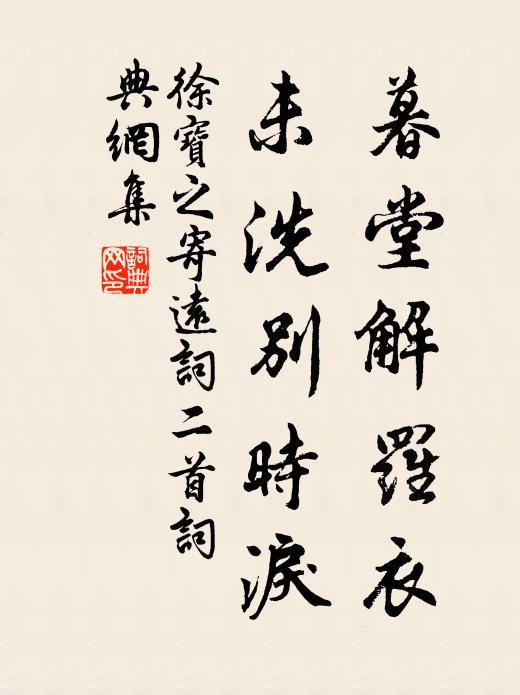 暮堂解羅衣
未洗別時淚
徐寶之寄遠詞二首詞
典網集
詞典